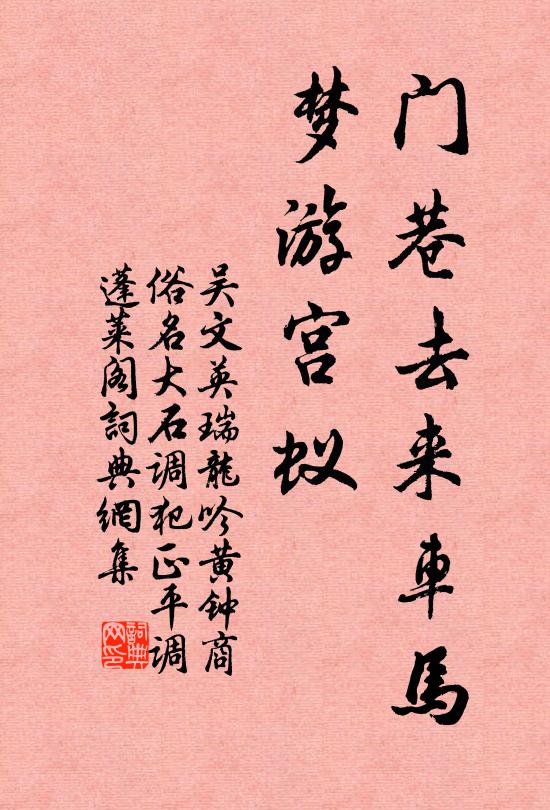 门巷去来車馬
梦游宫蚁
吴文英瑞龍吟黄钟商
俗名大石调犯正平调
蓬莱阁詞典網集
詞典网印